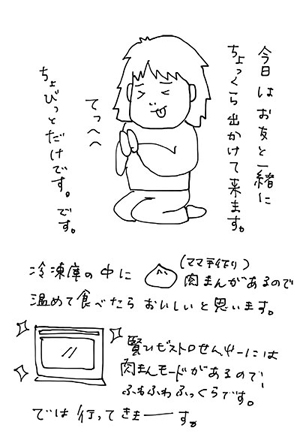 今日はお友と一緒に
ちょっくら出かけて来ます。
てっへへ
ちょびっとだけです。です。
冷凍庫の中に
(ママ手作り)
肉まんがあるので
温めて食べたらおいしいと思います。
賢いビストロせんサーには
肉まんモードがあるので!
ふわふわふっくらです。
では行ってきまーーす。